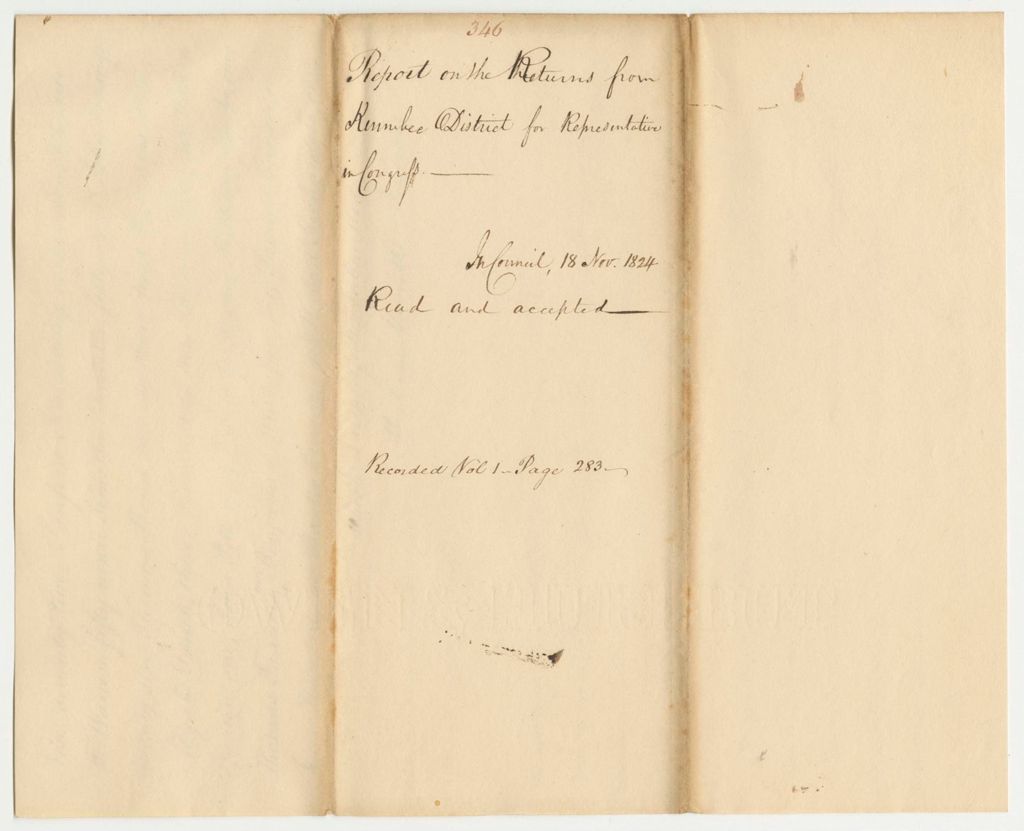 346
Report on the Returns from
Kennebec District for Representative
in Congress.
In Council, 18 Nov. 1824
Read and accepted
Recorded Vol 1 - Page 283